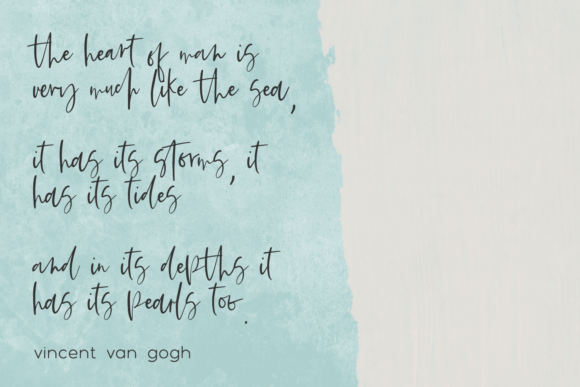 the heart of man is
very much like the sea,
it has its storms, it
has its tides
and in its depths it
has its pearls too.
vincent van gogh